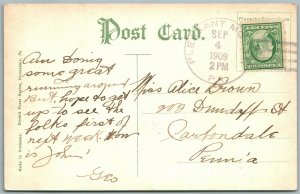 Post Card.
PLEASANT M
SEP
4
1909
2 PM
PA.
Am doing
some great
running around
But hope to get
up to see the
folks first of
next week. How
is John.
Geo
Miss Alice Brown
Dundaff St
Carbondale
Penn'a
Made in Germany.